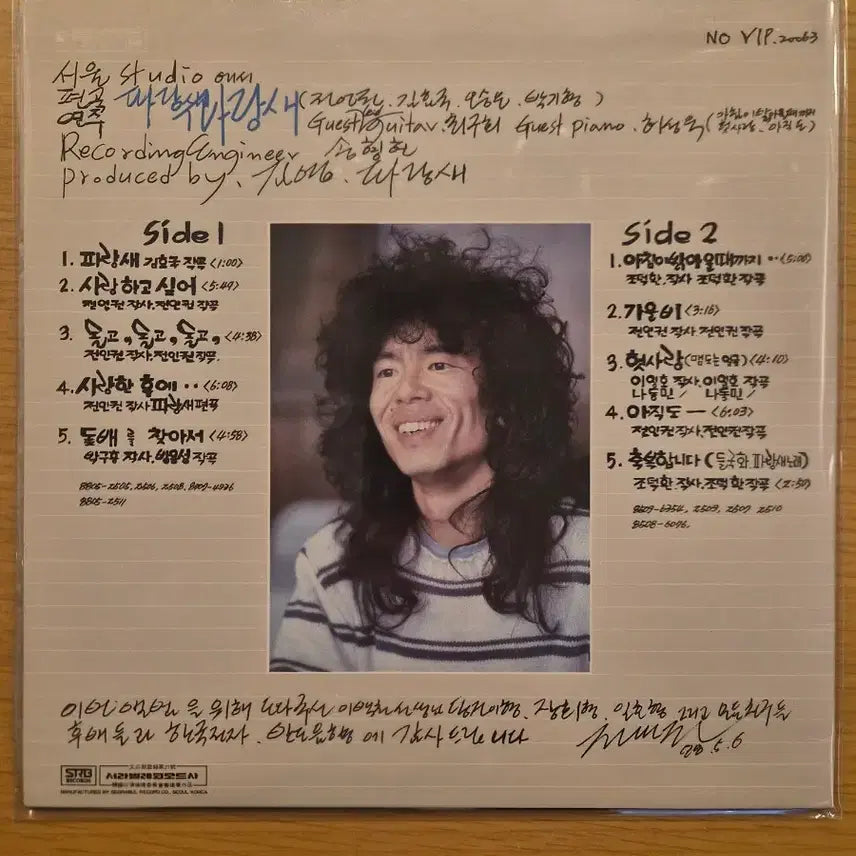 NO VIP.20063
서울 studio 에서
편곡
연주 파랑새 (전인권, 김효국, 오승은, 박기형)
Guest Guitar. 최구희 Guest piano. 허성욱 (아침이 밝아올때까지
헛사랑. 아직도)
Recording Engineer 송형헌
produced by. 김영. 파랑새
Side 1
1. 파랑새 김효국 작곡 <1:00>
2. 사랑하고 싶어 <5:49>
전인권 작사. 전인권 작곡
3. 돌고, 돌고, 돌고, <4:38>
전인권 작사. 전인권 작곡.
4. 사랑한 후에 ·· <6:08>
전인권 작사 파랑새 편곡
5. 돛배를 찾아서 <4:58>
8805-2505, 2506, 2508, 8707-4936
8805-2511
Side 2
1. 아침이 밝아올때까지 ·· <5:06>
조덕환. 작사 조덕환 작곡
2. 가운비 <3:16>
전인권 작사 전인권 작곡
3. 헛사랑 (맴도는 얼굴) <4:10>
이영호 작사. 이영호 작곡
나동민 / 나동민 /
4. 아직도 — <6:03>
전인권 작사. 전인권 작곡
5. 축복합니다 (들국화, 파랑새 노래)
조덕환 작사. 조덕환 작곡 <2:50>
8509-6354, 2509, 2507 2510
8508-6096.
을 위해 도와주신
후배들과 한국전자. 에 감사드립니다
88.5.6
STRB
RECORDS
서라벌레코오드사
MANUFACTURED BY SEORABUL RECORD CO., SEOUL KOREA